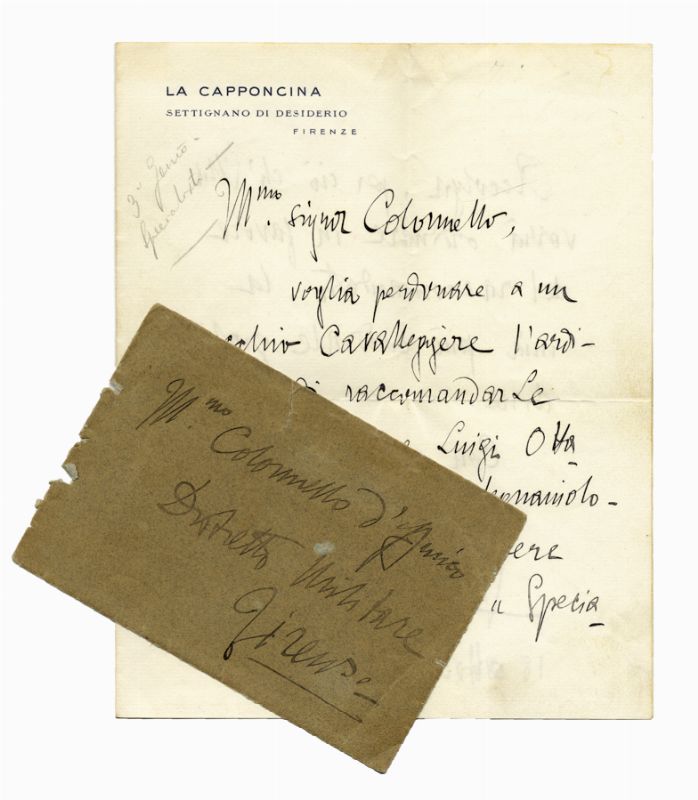 LA CAPPONCINA
SETTIGNANO DI DESIDERIO
FIRENZE
3° Genio
Specialisti
Ill.mo Signor Colonnello,
voglia perdonare a un
cchio Cavalleggere l'ardi-
di raccomandarLe
e Luigi Otta
legnaiolo-
ere
" Specia
Ill.mo
Colonnello d'
Distretto Militare
Firenze